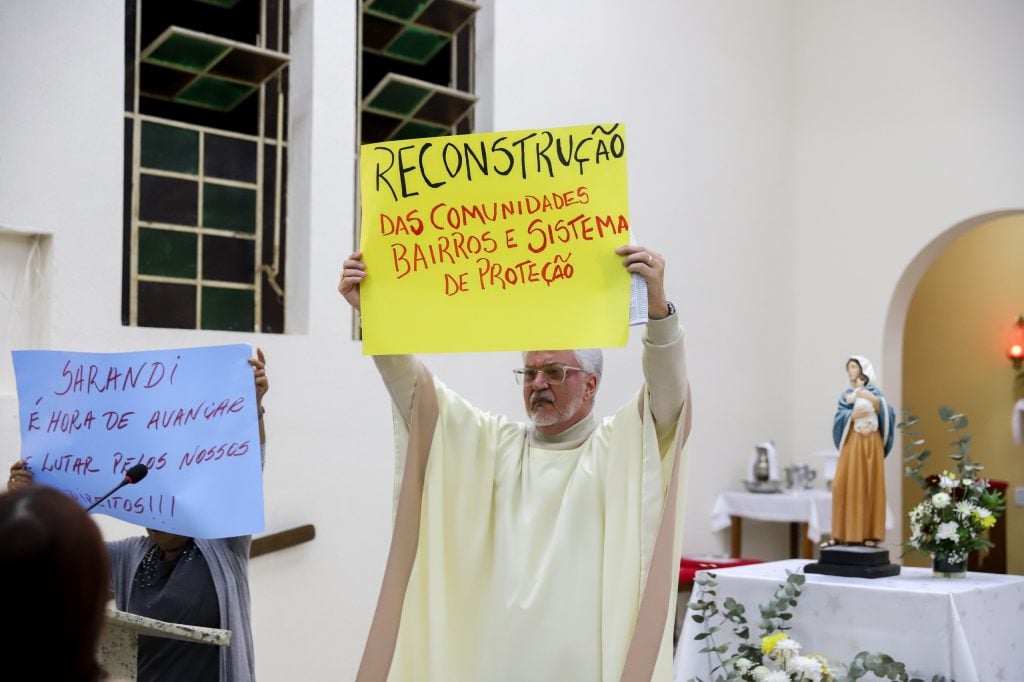 RECONSTRUÇÃO
DAS COMUNIDADES
BAIRROS E SISTEMA
DE PROTEÇÃO
SARANDI
É HORA DE AVANÇAR
E LUTAR PELOS NOSSOS
DIREITOS!!!